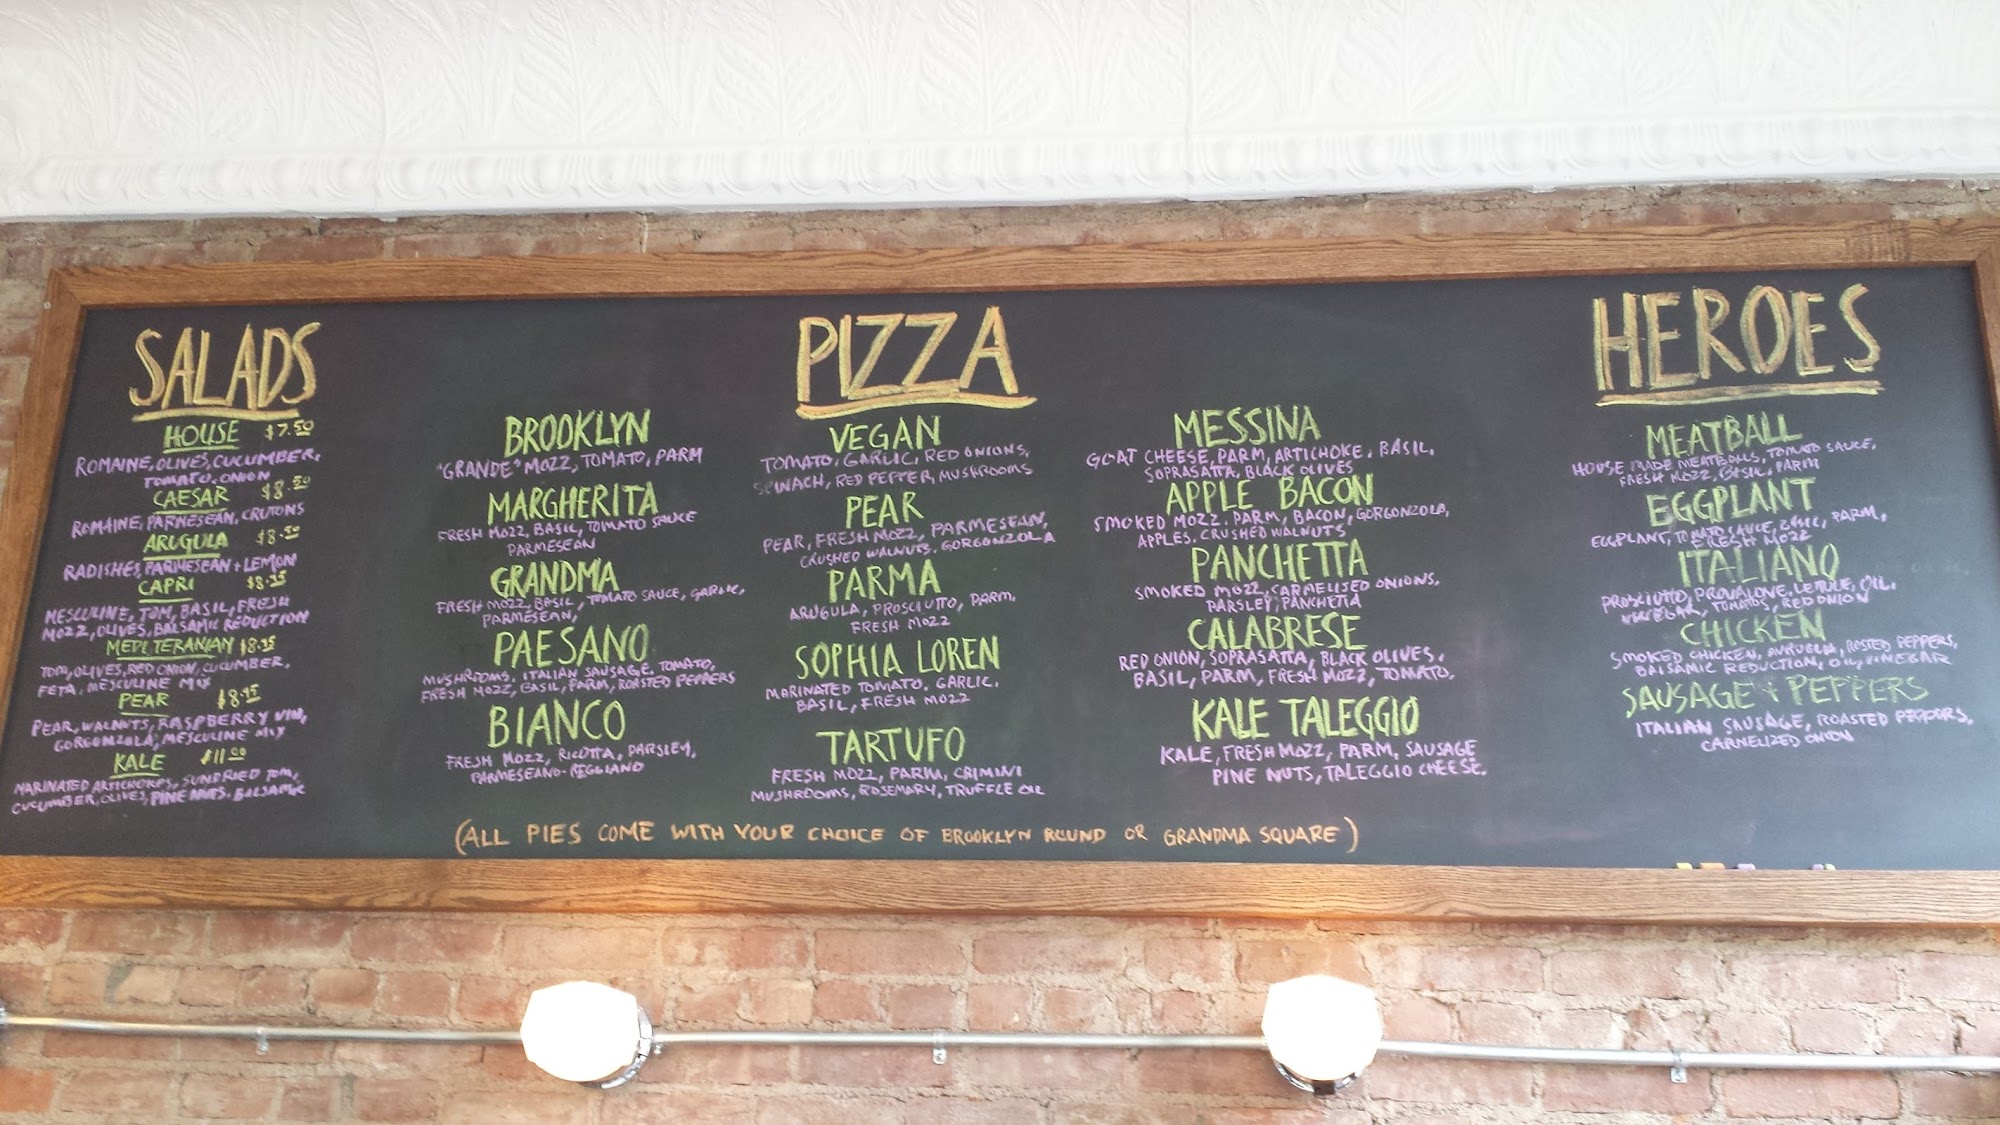 SALADS
HOUSE $7.50
ROMAINE, OLIVES, CUCUMBER,
TOMATO, ONION
CAESAR $8.50
ROMAINE, PARMESEAN, CRUTONS
ARUGULA $8.50
RADISHES, PARMESEAN + LEMON
CAPRI $8.95
MESCULINE, TOM, BASIL, FRESH
MOZZ, OLIVES, BALSAMIC REDUCTION
MEDITERANIAN $8.95
TOM, OLIVES, RED ONION, CUCUMBER,
FETA, MESCULINE MIX
PEAR $8.95
PEAR, WALNUTS, RASPBERRY VIN,
GORGONZOLA, MESCULINE MIX
KALE $11.00
MARINATED ARTICHOKES, SUNDRIED TOM,
CUCUMBER, OLIVES, PINE NUTS, BALSAMIC
PIZZA
BROOKLYN
"GRANDE" MOZZ, TOMATO, PARM
MARGHERITA
FRESH MOZZ, BASIL, TOMATO SAUCE
PARMESEAN
GRANDMA
FRESH MOZZ, BASIL, TOMATO SAUCE, GARLIC,
PARMESEAN,
PAESANO
MUSHROOMS, ITALIAN SAUSAGE, TOMATO,
FRESH MOZZ, BASIL, PARM, ROASTED PEPPERS
BIANCO
FRESH MOZZ, RICOTTA, PARSLEY,
PARMESEANO-REGGIANO
VEGAN
TOMATO, GARLIC, RED ONIONS,
SPINACH, RED PEPPER, MUSHROOMS
PEAR
PEAR, FRESH MOZZ, PARMESEAN,
CRUSHED WALNUTS, GORGONZOLA
PARMA
ARUGULA, PROSCIUTTO, PARM,
FRESH MOZZ
SOPHIA LOREN
MARINATED TOMATO, GARLIC,
BASIL, FRESH MOZZ
TARTUFO
FRESH MOZZ, PARM, CRIMINI
MUSHROOMS, ROSEMARY, TRUFFLE OIL
MESSINA
GOAT CHEESE, PARM, ARTICHOKE, BASIL,
SOPRASATTA, BLACK OLIVES
APPLE BACON
SMOKED MOZZ, PARM, BACON, GORGONZOLA,
APPLES, CRUSHED WALNUTS
PANCHETTA
SMOKED MOZZ, CARMELISED ONIONS,
PARSLEY, PANCHETTA
CALABRESE
RED ONION, SOPRASATTA, BLACK OLIVES,
BASIL, PARM, FRESH MOZZ, TOMATO.
KALE TALEGGIO
KALE, FRESH MOZZ, PARM, SAUSAGE
PINE NUTS, TALEGGIO CHEESE.
(ALL PIES COME WITH YOUR CHOICE OF BROOKLYN ROUND OR GRANDMA SQUARE)
HEROES
MEATBALL
HOUSE MADE MEATBALLS, TOMATO SAUCE,
FRESH MOZZ, BASIL, PARM
EGGPLANT
EGGPLANT, TOMATO SAUCE, BASIL, PARM,
FRESH MOZZ
ITALIANO
PROSCIUTTO, PROVALONE, LETTUCE, OIL,
VINEGAR, TOMATOS, RED ONION
CHICKEN
SMOKED CHICKEN, ARUGULA, ROSTED PEPPERS,
BALSAMIC REDUCTION, OIL, VINEGAR
SAUSAGE + PEPPERS
ITALIAN SAUSAGE, ROASTED PEPPERS,
CARMELIZED ONION